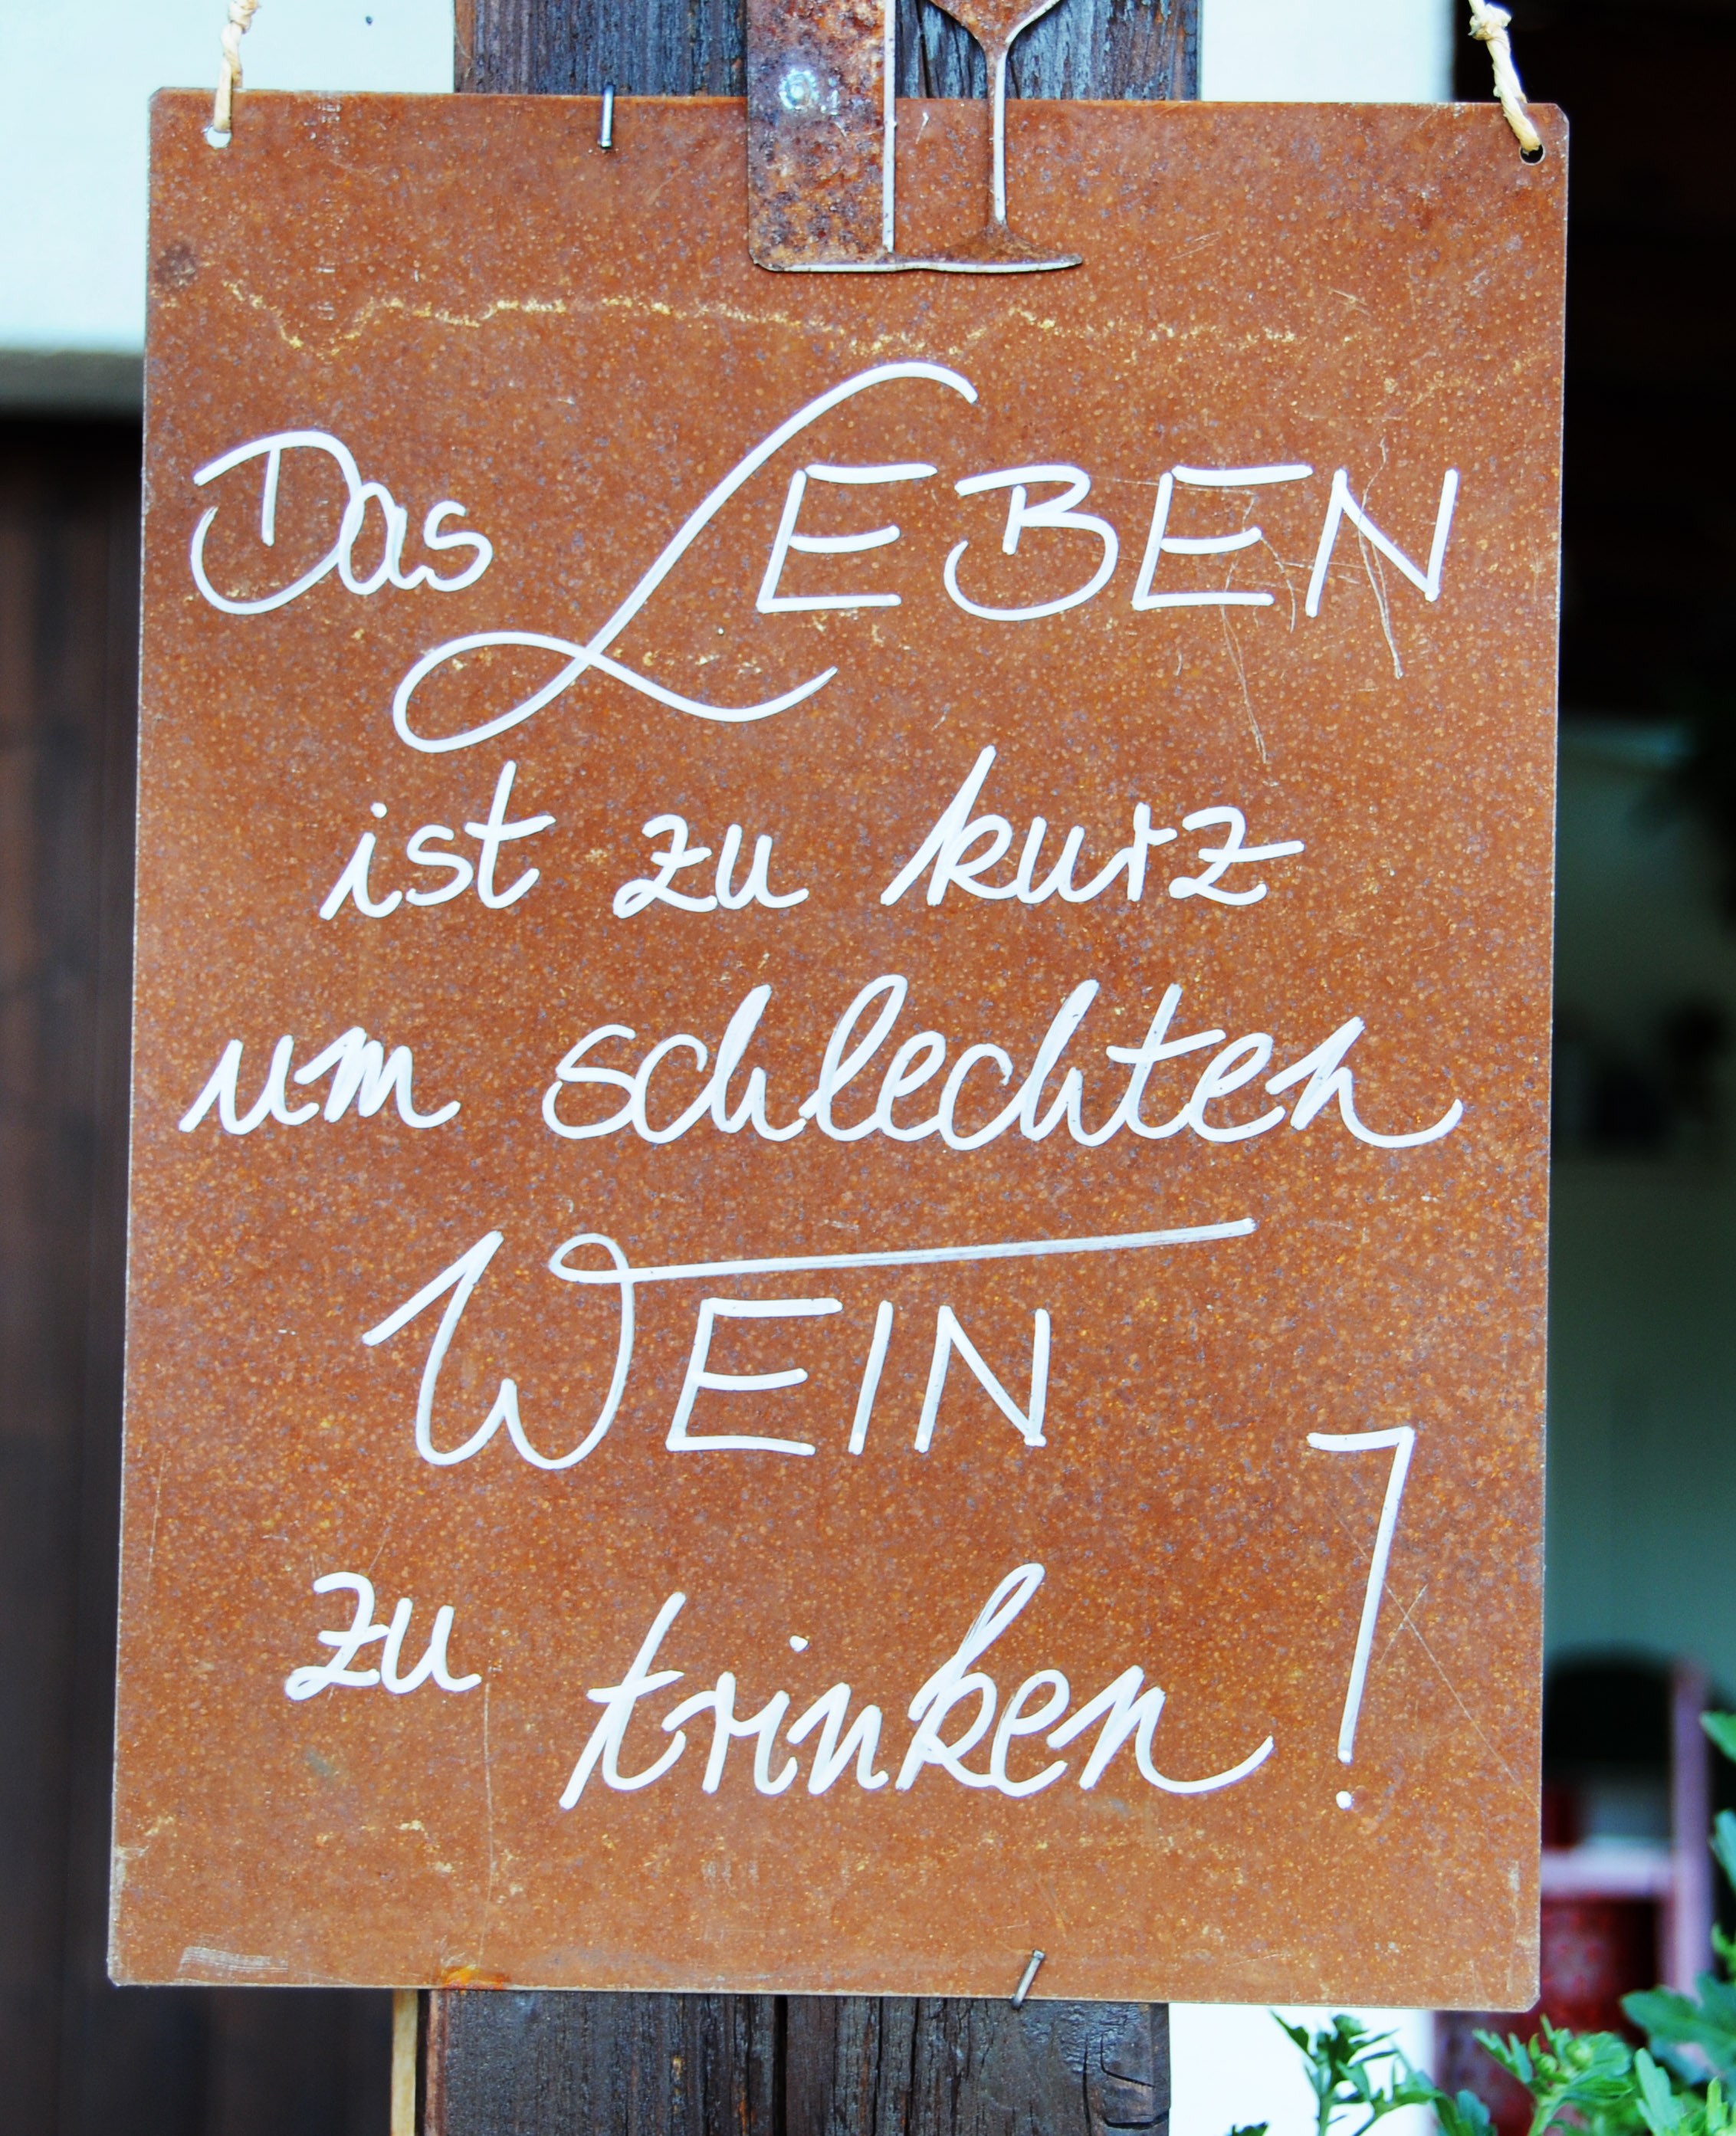 Das LEBEN
ist zu kurz
um schlechten
WEIN
zu trinken!